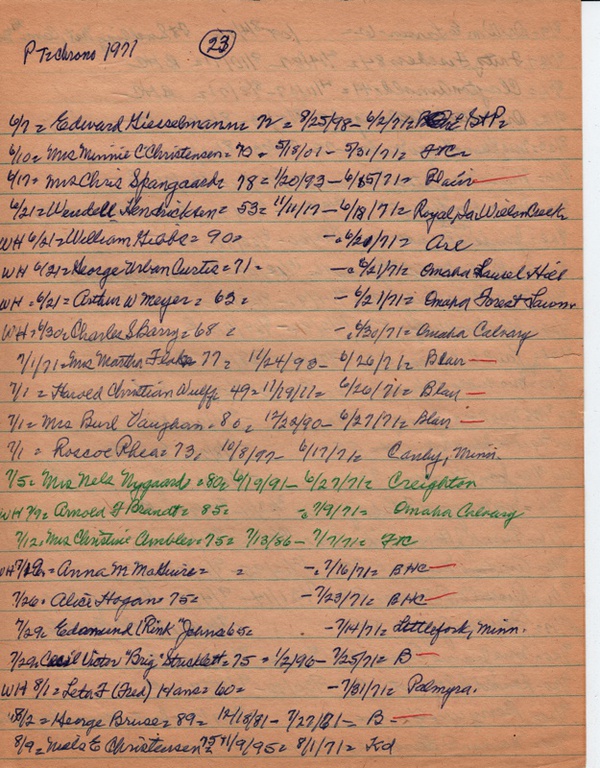 P Tzchrono 1971 (23)
6/7 = Edward Giesselmann = 72 = 8/25/98 - 6/2/71 =
6/10 = Mrs Minnie C Christensen = 70 = 5/18/01 - 5/31/71 = FC =
6/17 = Mrs Chris Spangaard = 78 = 1/20/93 - 6/15/71 = Blair
6/21 = Wendell Hendrickson = 53 = 11/11/17 - 6/18/71 = Royal, Ia. Willow Creek
WH 6/21 = William Gibbs = 90 = - 6/20/71 = Arl
WH 6/21 = George Urban Curtis = 71 = - 6/21/71 = Omaha Laurel Hill
WH = 6/21 = Arthur W Meyer = 63 = - 6/21/71 = Omaha Forest Lawn
WH = 6/30 = Charles S Barry = 68 = - 6/30/71 = Omaha Calvary
7/1/71 = Mrs Martha 77 = 11/24/93 - 6/26/71 = Blair
7/1 = Harold Christian Wulff 49 = 11/19/21 = 6/26/71 = Blair
7/1 = Mrs Burl Vaughan = 80 = 12/22/90 - 6/27/71 = Blair
7/1 = Roscoe Rhea = 73 = 10/8/97 - 6/17/71 = Canby, Minn.
7/5 = Mrs Nels Nygaard = 80 = 6/19/91 - 6/27/71 = Creighton
WH 7/9 = Arnold F Brandt = 85 = = 7/9/71 = Omaha Calvary
7/12 = Mrs Christine Ambler = 75 = 7/13/86 - 7/7/71 = FC
WH 7/19 = Anna M McGuire = = - 7/16/71 = BHC
7/26 = Alice Hogan = 75 = - 7/23/71 = BHC
7/29 = Edamund (Rink" Johns 65 = - 7/14/71 = Littlefork, Minn.
7/29 = Cecil Victor "Brig" Stricklett = 75 = 1/2/96 - 7/25/71 = B
WH 8/1 = Leta F (Fred) Hans = 60 = - 7/31/71 = Palmyra.
8/2 = George Bruse = 89 = 12/18/81 - 7/27/71 - B
8/9 = Niels E Christensen 75 = 11/9/95 = 8/1/71 = Kd